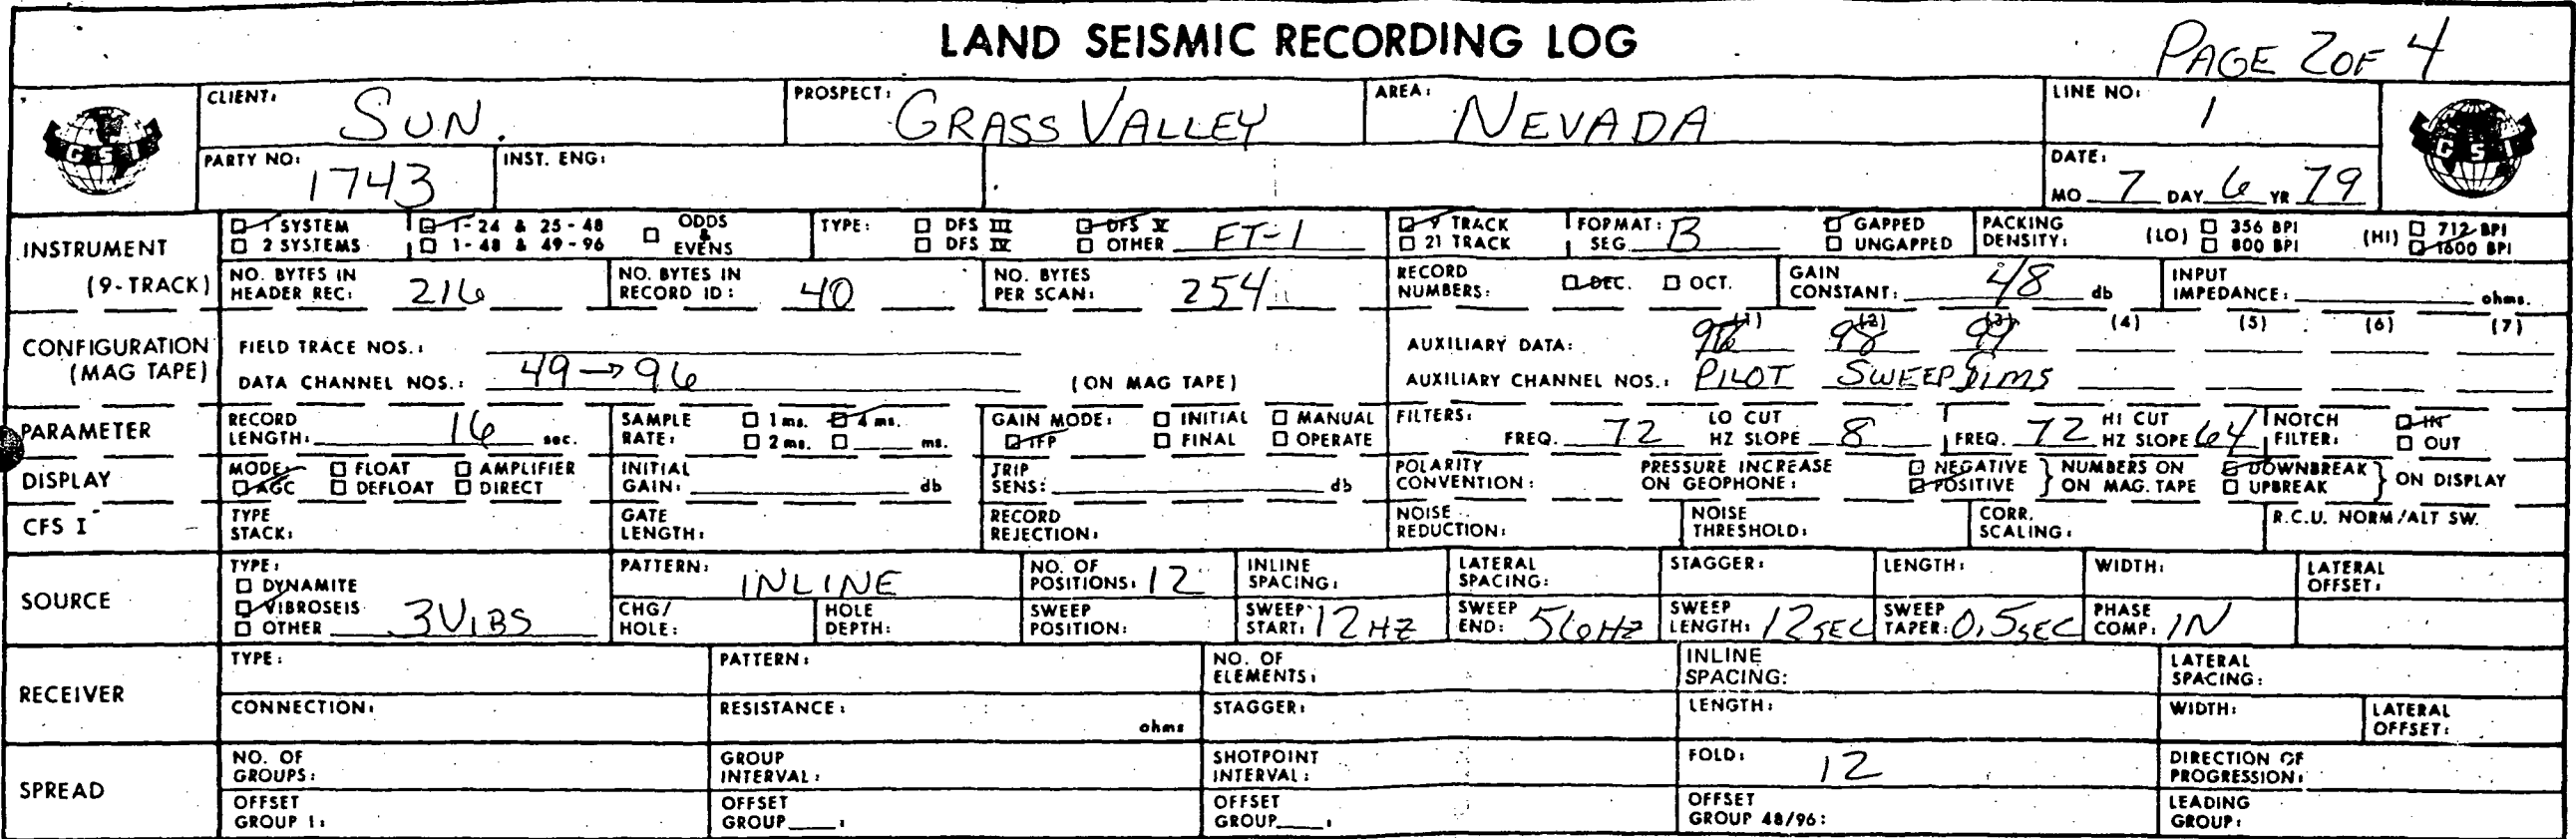 LAND SEISMIC RECORDING LOG
PAGE 2 OF 4
CLIENT: SUN. PROSPECT: GRASS VALLEY AREA: NEVADA LINE NO: 1
GSI GSI
PARTY NO: 1743 INST. ENG: DATE: MO 7 DAY 6 YR 79
INSTRUMENT (9-TRACK)
1 SYSTEM 1-24 & 25-48 ODDS & EVENS TYPE: DFS III DFS V 9 TRACK FORMAT: SEG B GAPPED PACKING DENSITY: (LO) 356 BPI (HI) 712 BPI
2 SYSTEMS 1-48 & 49-96 DFS IV OTHER FT-1 21 TRACK UNGAPPED 800 BPI 1600 BPI
NO. BYTES IN HEADER REC: 216 NO. BYTES IN RECORD ID: 40 NO. BYTES PER SCAN: 254 RECORD NUMBERS: DEC. OCT. GAIN CONSTANT: 48 db INPUT IMPEDANCE: ohms.
CONFIGURATION (MAG TAPE)
FIELD TRACE NOS.: AUXILIARY DATA: (1) 98 (2) 99 (3) (4) (5) (6) (7)
DATA CHANNEL NOS.: 49→96 (ON MAG TAPE) AUXILIARY CHANNEL NOS.: PILOT SWEEP
PARAMETER RECORD LENGTH: 16 sec. SAMPLE RATE: 1 ms. 4 ms. 2 ms. ms. GAIN MODE: INITIAL MANUAL IFP FINAL OPERATE FILTERS: FREQ. 72 LO CUT HZ SLOPE 8 FREQ. 72 HI CUT HZ SLOPE 64 NOTCH FILTER: IN OUT
DISPLAY MODE: FLOAT AMPLIFIER AGC DEFLOAT DIRECT INITIAL GAIN: db TRIP SENS: db POLARITY CONVENTION: PRESSURE INCREASE ON GEOPHONE: NEGATIVE POSITIVE } NUMBERS ON ON MAG. TAPE DOWNBREAK UPBREAK } ON DISPLAY
CFS I TYPE STACK: GATE LENGTH: RECORD REJECTION: NOISE REDUCTION: NOISE THRESHOLD: CORR. SCALING: R.C.U. NORM/ALT SW.
SOURCE TYPE: DYNAMITE VIBROSEIS OTHER 3 VIBS
PATTERN: INLINE NO. OF POSITIONS: 12 INLINE SPACING: LATERAL SPACING: STAGGER: LENGTH: WIDTH: LATERAL OFFSET:
CHG/HOLE: HOLE DEPTH: SWEEP POSITION: SWEEP START: 12 HZ SWEEP END: 56 HZ SWEEP LENGTH: 12 SEC SWEEP TAPER: 0.5 SEC PHASE COMP: IN
RECEIVER TYPE: PATTERN: NO. OF ELEMENTS: INLINE SPACING: LATERAL SPACING:
CONNECTION: RESISTANCE: ohms STAGGER: LENGTH: WIDTH: LATERAL OFFSET:
SPREAD NO. OF GROUPS: GROUP INTERVAL: SHOTPOINT INTERVAL: FOLD: 12 DIRECTION OF PROGRESSION:
OFFSET GROUP 1: OFFSET GROUP ___: OFFSET GROUP ___: OFFSET GROUP 48/96: LEADING GROUP: